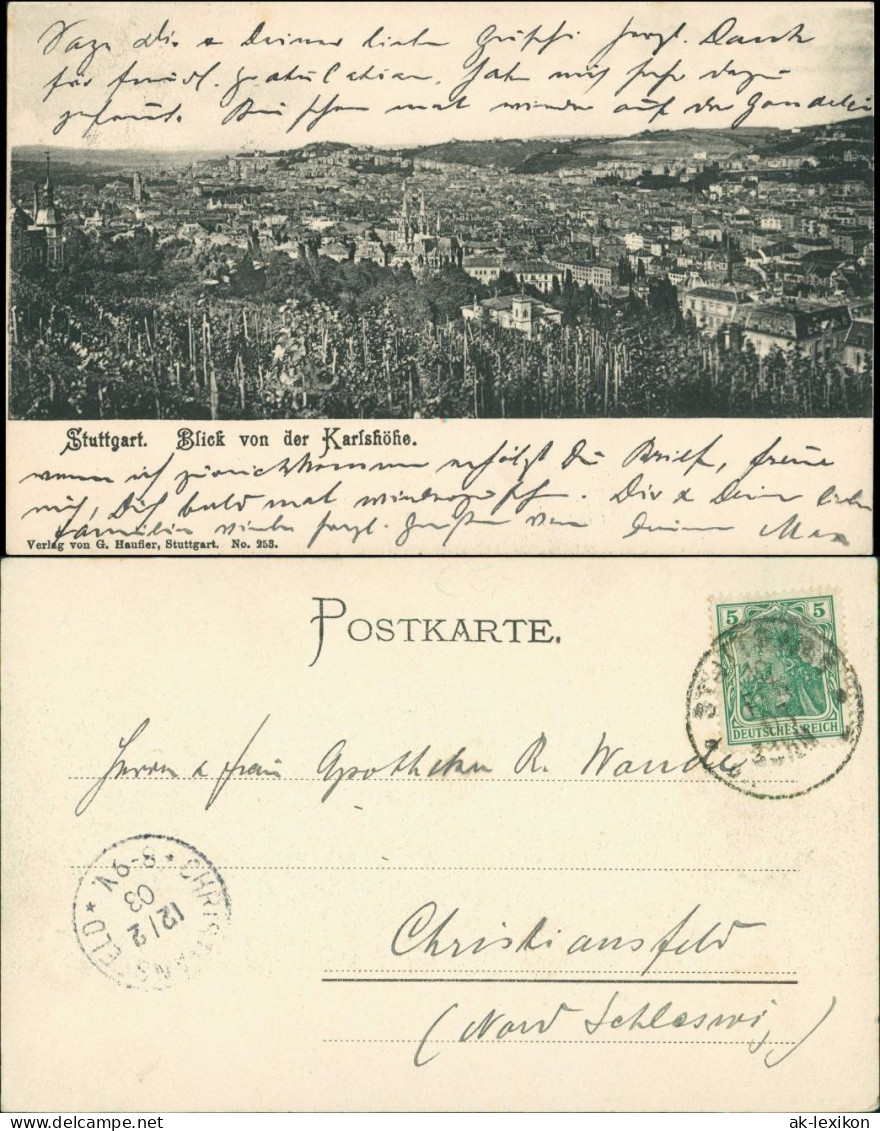 Sage Dir & Deiner lieben herzl. Dank
für frndl. Gratulation, hab mich sehr dazu
gefreut. mal wieder auf der
Stuttgart. Blick von der Karlshöhe.
wenn ich zurückkomme erhälst Du Brief, freue
mich, Dich bald mal wiederzusehen. Dir & Deiner lieben
Familie viele herzl. Grüße von Deinem Max
Verlag von G. Haufler, Stuttgart. No. 253.
POSTKARTE.
5 5
DEUTSCHES REICH
Herrn & Frau Apotheker R.
CHRISTIANSFELD
12/2
03
8-9V.
Christiansfeld
(Nord Schleswig)
ak-lexikon